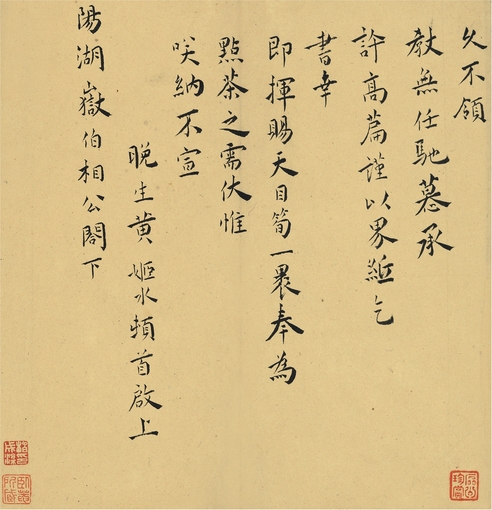 久不領
教無任馳慕承
許高篇謹以界紙乞
書幸
即揮賜天目筍一裹奉為
點茶之需伏惟
咲納不宣
晚生黄姬水頓首啟上
陽湖嶽伯相公閣下